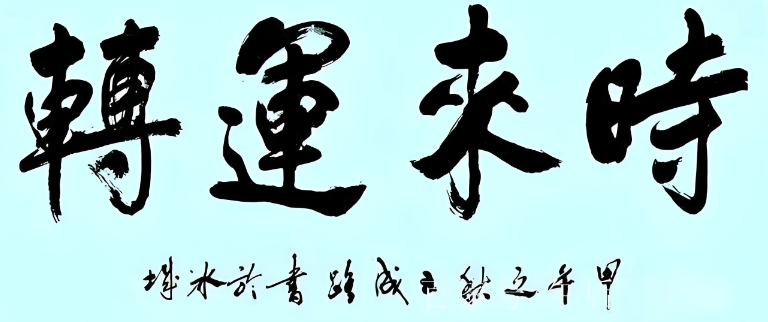 時來運轉
甲午之秋成路書於冰城